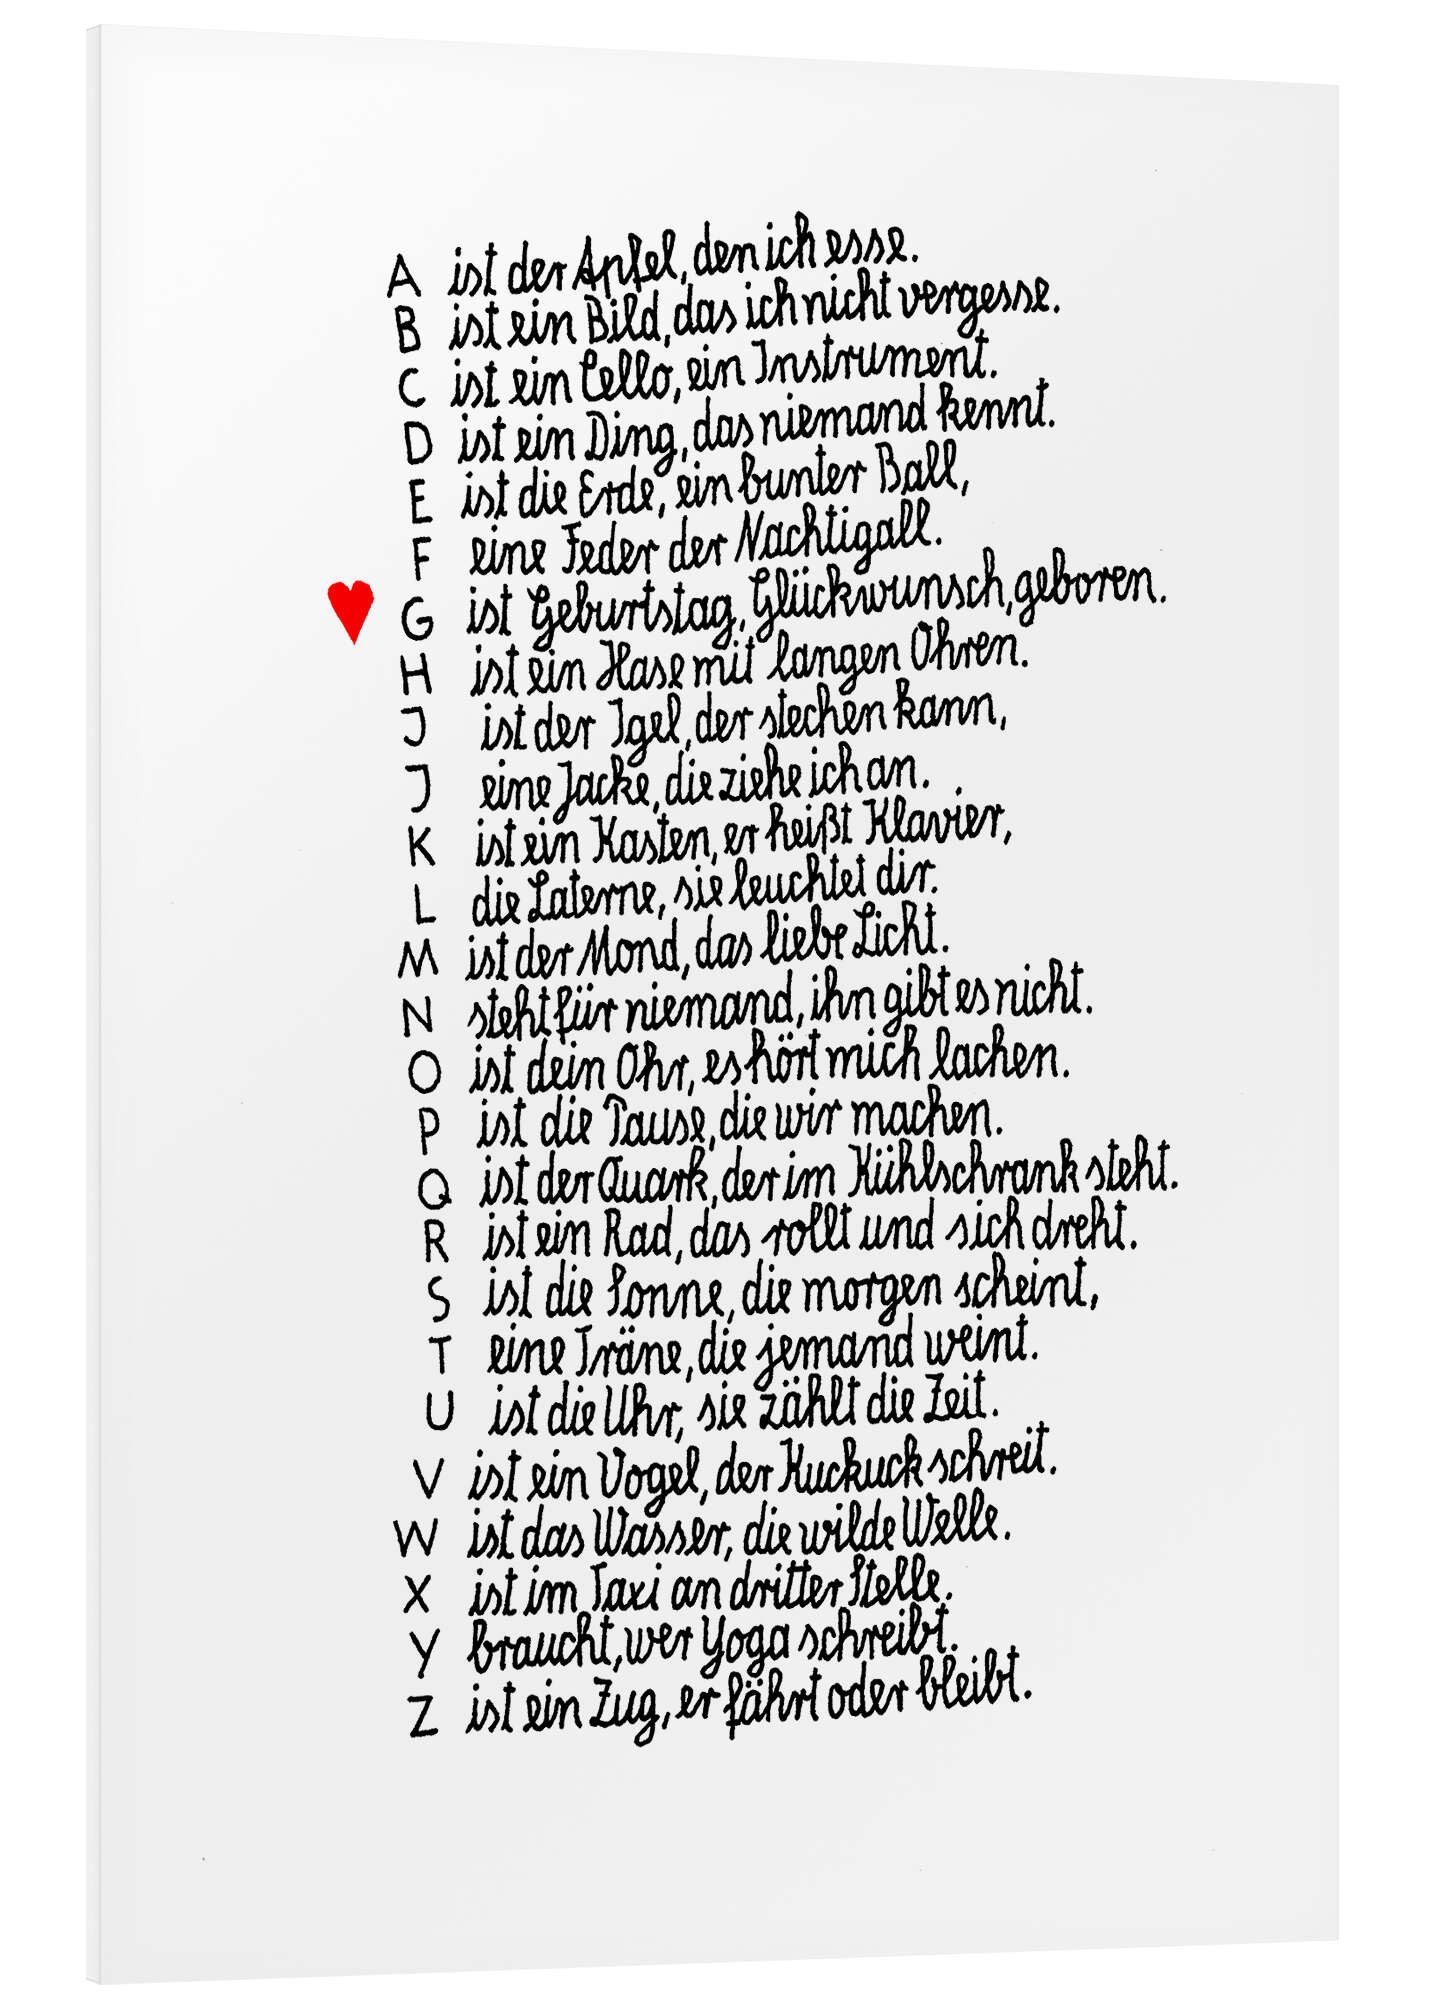 A ist der Apfel, den ich esse.
B ist ein Bild, das ich nicht vergesse.
C ist ein Cello, ein Instrument.
D ist ein Ding, das niemand kennt.
E ist die Erde, ein bunter Ball,
F eine Feder der Nachtigall.
G ist Geburtstag, Glückwunsch, geboren.
H ist ein Hase mit langen Ohren.
J ist der Igel, der stechen kann,
J eine Jacke, die ziehe ich an.
K ist ein Kasten, er heißt Klavier,
L die Laterne, sie leuchtet dir.
M ist der Mond, das liebe Licht.
N steht für niemand, ihn gibt es nicht.
O ist dein Ohr, es hört mich lachen.
P ist die Pause, die wir machen.
Q ist der Quark, der im Kühlschrank steht.
R ist ein Rad, das rollt und sich dreht.
S ist die Sonne, die morgen scheint,
T eine Träne, die jemand weint.
U ist die Uhr, sie zählt die Zeit.
V ist ein Vogel, der Kuckuck schreit.
W ist das Wasser, die wilde Welle.
X ist im Taxi an dritter Stelle.
Y braucht, wer Yoga schreibt.
Z ist ein Zug, er fährt oder bleibt.